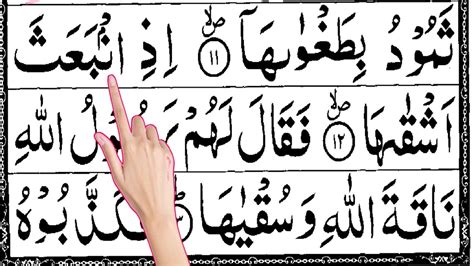 ثَمُوۡدُ بِطَغۡوٰىهَاۤ ۙ﴿۱۱﴾ اِذِ انۡۢبَعَثَ
اَشۡقٰىهَا ۙ﴿۱۲﴾ فَقَالَ لَهُمۡ رَسُوۡلُ اللّٰهِ
نَاقَةَ اللّٰهِ وَسُقۡيٰهَا فَكَذَّبُوۡهُ